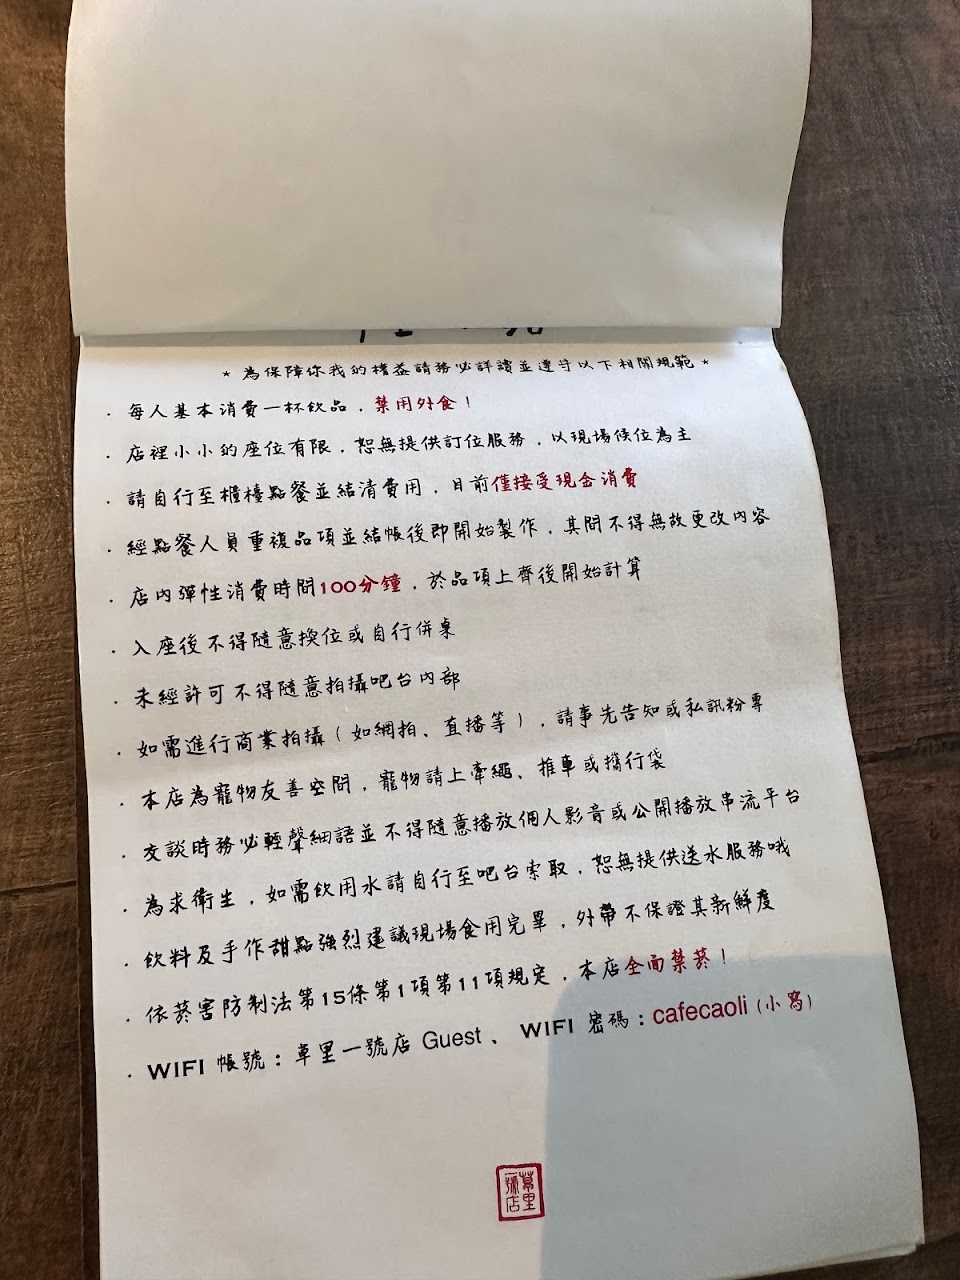 * 為保障你我的權益請務必詳讀並遵守以下相關規範 *
· 每人基本消費一杯飲品，禁用外食！
· 店裡小小的座位有限，恕無提供訂位服務，以現場候位為主
· 請自行至櫃檯點餐並結清費用，目前僅接受現金消費
· 經點餐人員重複品項並結帳後即開始製作，其間不得無故更改內容
· 店內彈性消費時間100分鐘，於品項上齊後開始計算
· 入座後不得隨意換位或自行併桌
· 未經許可不得隨意拍攝吧台內部
· 如需進行商業拍攝（如網拍、直播等），請事先告知或私訊粉專
· 本店為寵物友善空間，寵物請上牽繩、推車或攜行袋
· 交談時務必輕聲細語並不得隨意播放個人影音或公開播放串流平台
· 為求衛生，如需飲用水請自行至吧台索取，恕無提供送水服務哦
· 飲料及手作甜點強烈建議現場食用完畢，外帶不保證其新鮮度
· 依菸害防制法第15條第1項第11項規定，本店全面禁菸！
· WIFI 帳號：草里一號店 Guest、 WIFI 密碼：cafecaoli (小寫)
草里
一號店